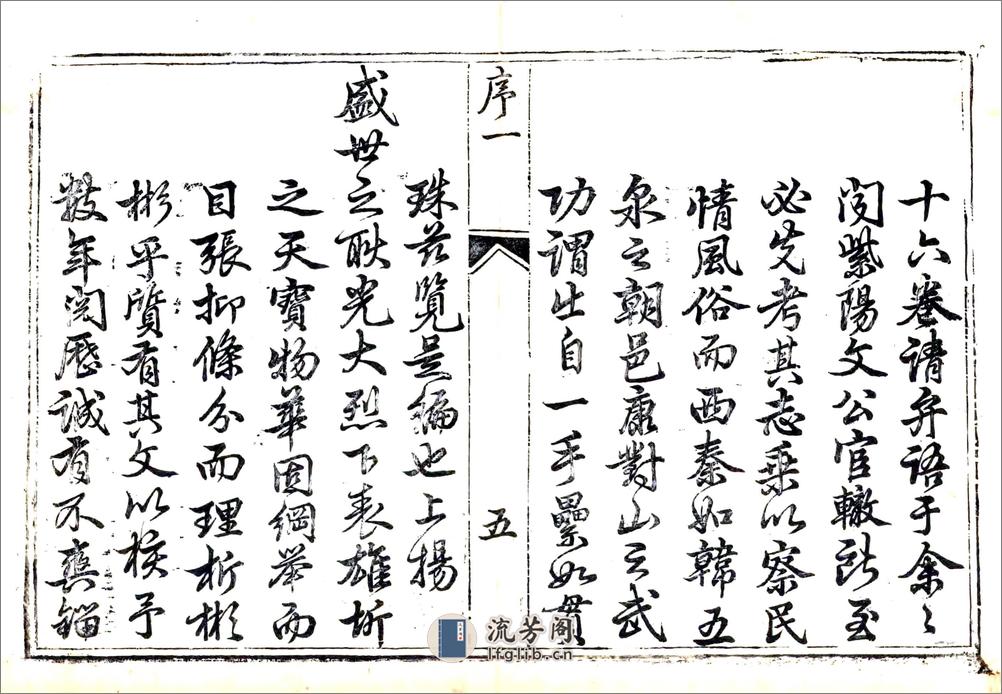 十六卷請弁語于余〻
閱紫陽文公官轍所至
必先考其志乘以察民
情風俗而西秦如韓五
泉之朝邑康對山之武
功謂出自一手纍如貫
序一
五
珠茲覽是編也上揚
盛世之耿光大烈下表雄圻
之天寶物華固綱舉而
目張抑條分而理析彬
彬乎質有其文以揆予
數年閱歷誠有不爽錙
流芳阁
lfglib.cn